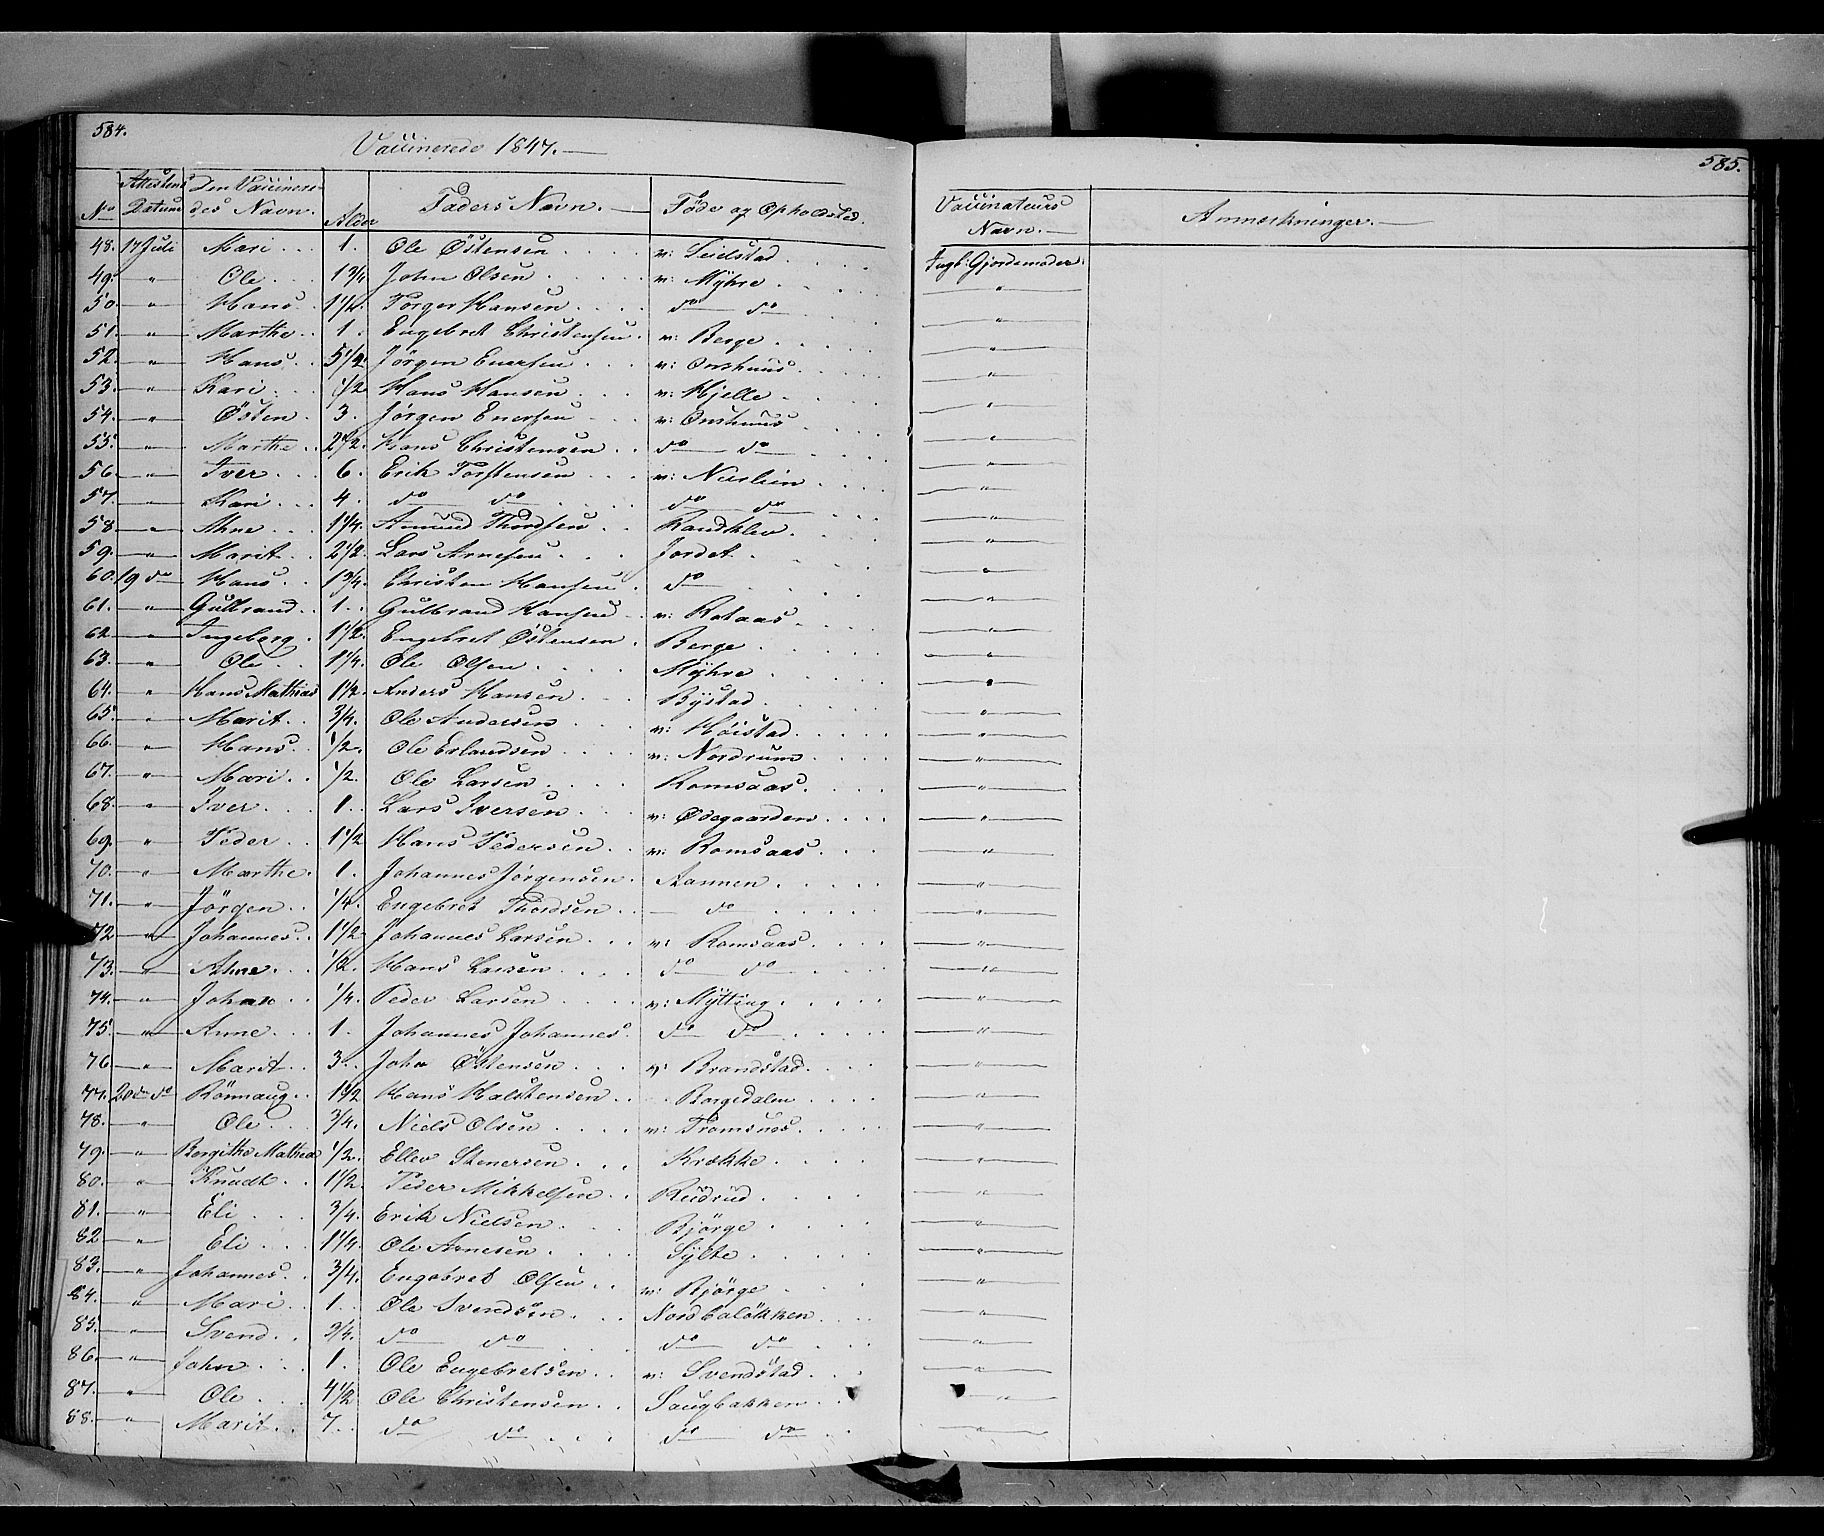 584.
Vaccinerede 1847.
585.
No Attestens Datum Den Vaccineredes Navn. Alder Faders Navn. Føde og Opholdsted. Vaccinateurs Navn. Anmærkninger.
48. 17 Juli Mari 1. Ole Østensen v: Seielstad Ingb: Gjordemoder
49. " Ole 1 3/4 John Olsen v: Myhre "
50. " Hans 1 1/2. Torger Hansen do do "
51. " Marthe 1. Engebret Christensen v: Berge "
52. " Hans 5 1/2. Jørgen Enersen v: Onshuus "
53. " Kari 1/2 Hans Hansen v: Hjelle "
54. " Østen 3. Jørgen Enersen v: Onshuus "
55. " Marthe 2 1/2. Hans Christensen do do "
56. " Iver 6. Erik Torstensen v: "
57. " Kari 4. do do do do "
58 " Ahne 1 1/4. Amund Thordsen Randklev "
59. " Marit 2 1/2. Lars Arnesen Jordet "
60. 19 do Hans 1 3/4. Christen Hansen do "
61. " Gulbrand 1. Gulbrand Hansen v: Rataas "
62 " Ingeborg 1 1/2. Engebret Østensen Berge "
63. " Ole 1 1/4. Ole Olsen Myhre "
64. " Hans Mathias 1 1/2. Anders Hansen Bystad "
65. " Marit 3/4. Ole Andersen v: Høistad "
66. " Hans 1/2. Ole Erlandsen v: Nordrum "
67. " Mari 1/2. Ole Larsen Romsaas "
68. " Iver 1. Lars Iversen v: Ødegaarden "
69. " Peder 1 1/2 Hans Pedersen v: Romsaas "
70. " Marthe 1. Johannes Jørgensen Aannen "
71. " Jörgen 1/4. Engebret Thordsen do "
72 " Johannes 1 1/2 Johannes Larsen v: Romsaas "
73. " Ahne 1/2. Hans Larsen do do "
74. " Johan 1/4. Peder Larsen v: Mytting "
75. " Anne 1. Johannes Johannes. do do "
76 " Marit 3. John Østensen v: Brandstad "
77. 20de do Rönnaug 1 1/2 Hans Halstensen Borgedalen "
78. " Ole 3/4. Niels Olsen v: Tromsnes "
79. " Bergithe Mathea 1/2. Ellev Stenersen Krække "
80. " Knudt 1 1/2. Peder Mikkelsen Rudrud "
81. " Eli 3/4. Erik Nielsen Bjørge "
82 " Eli 1 1/4. Ole Arnesen Sylte "
83. " Johannes 3/4. Engebret Olsen v: Bjørge "
84. " Mari 1. Ole Svendsen Nordbaløkken "
85. " Svend 3/4. do do do do "
86. " John 1. Ole Engebretsen v: Svendstad "
87. " Ole 4 1/2 Ole Christensen Saugbakken "
88. " Marit 7. do do do do "